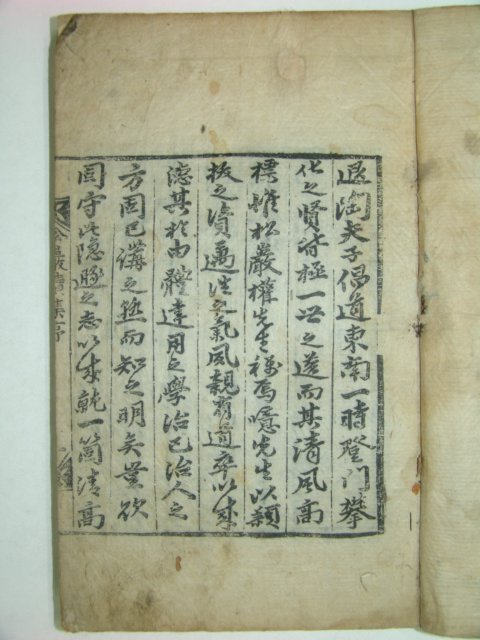 退陶夫子倡道東南一時登門攀
化之賢皆極一世之選而其清風高
標惟松巖權先生獨焉噫先生以穎
拔之資邁往之氣夙親有道卒以成
德其於由體達用之學治己治人之
方固已講之熟而知之明矣豈欲
固守此隱遯之志以成就一箇清高
松巖續集序